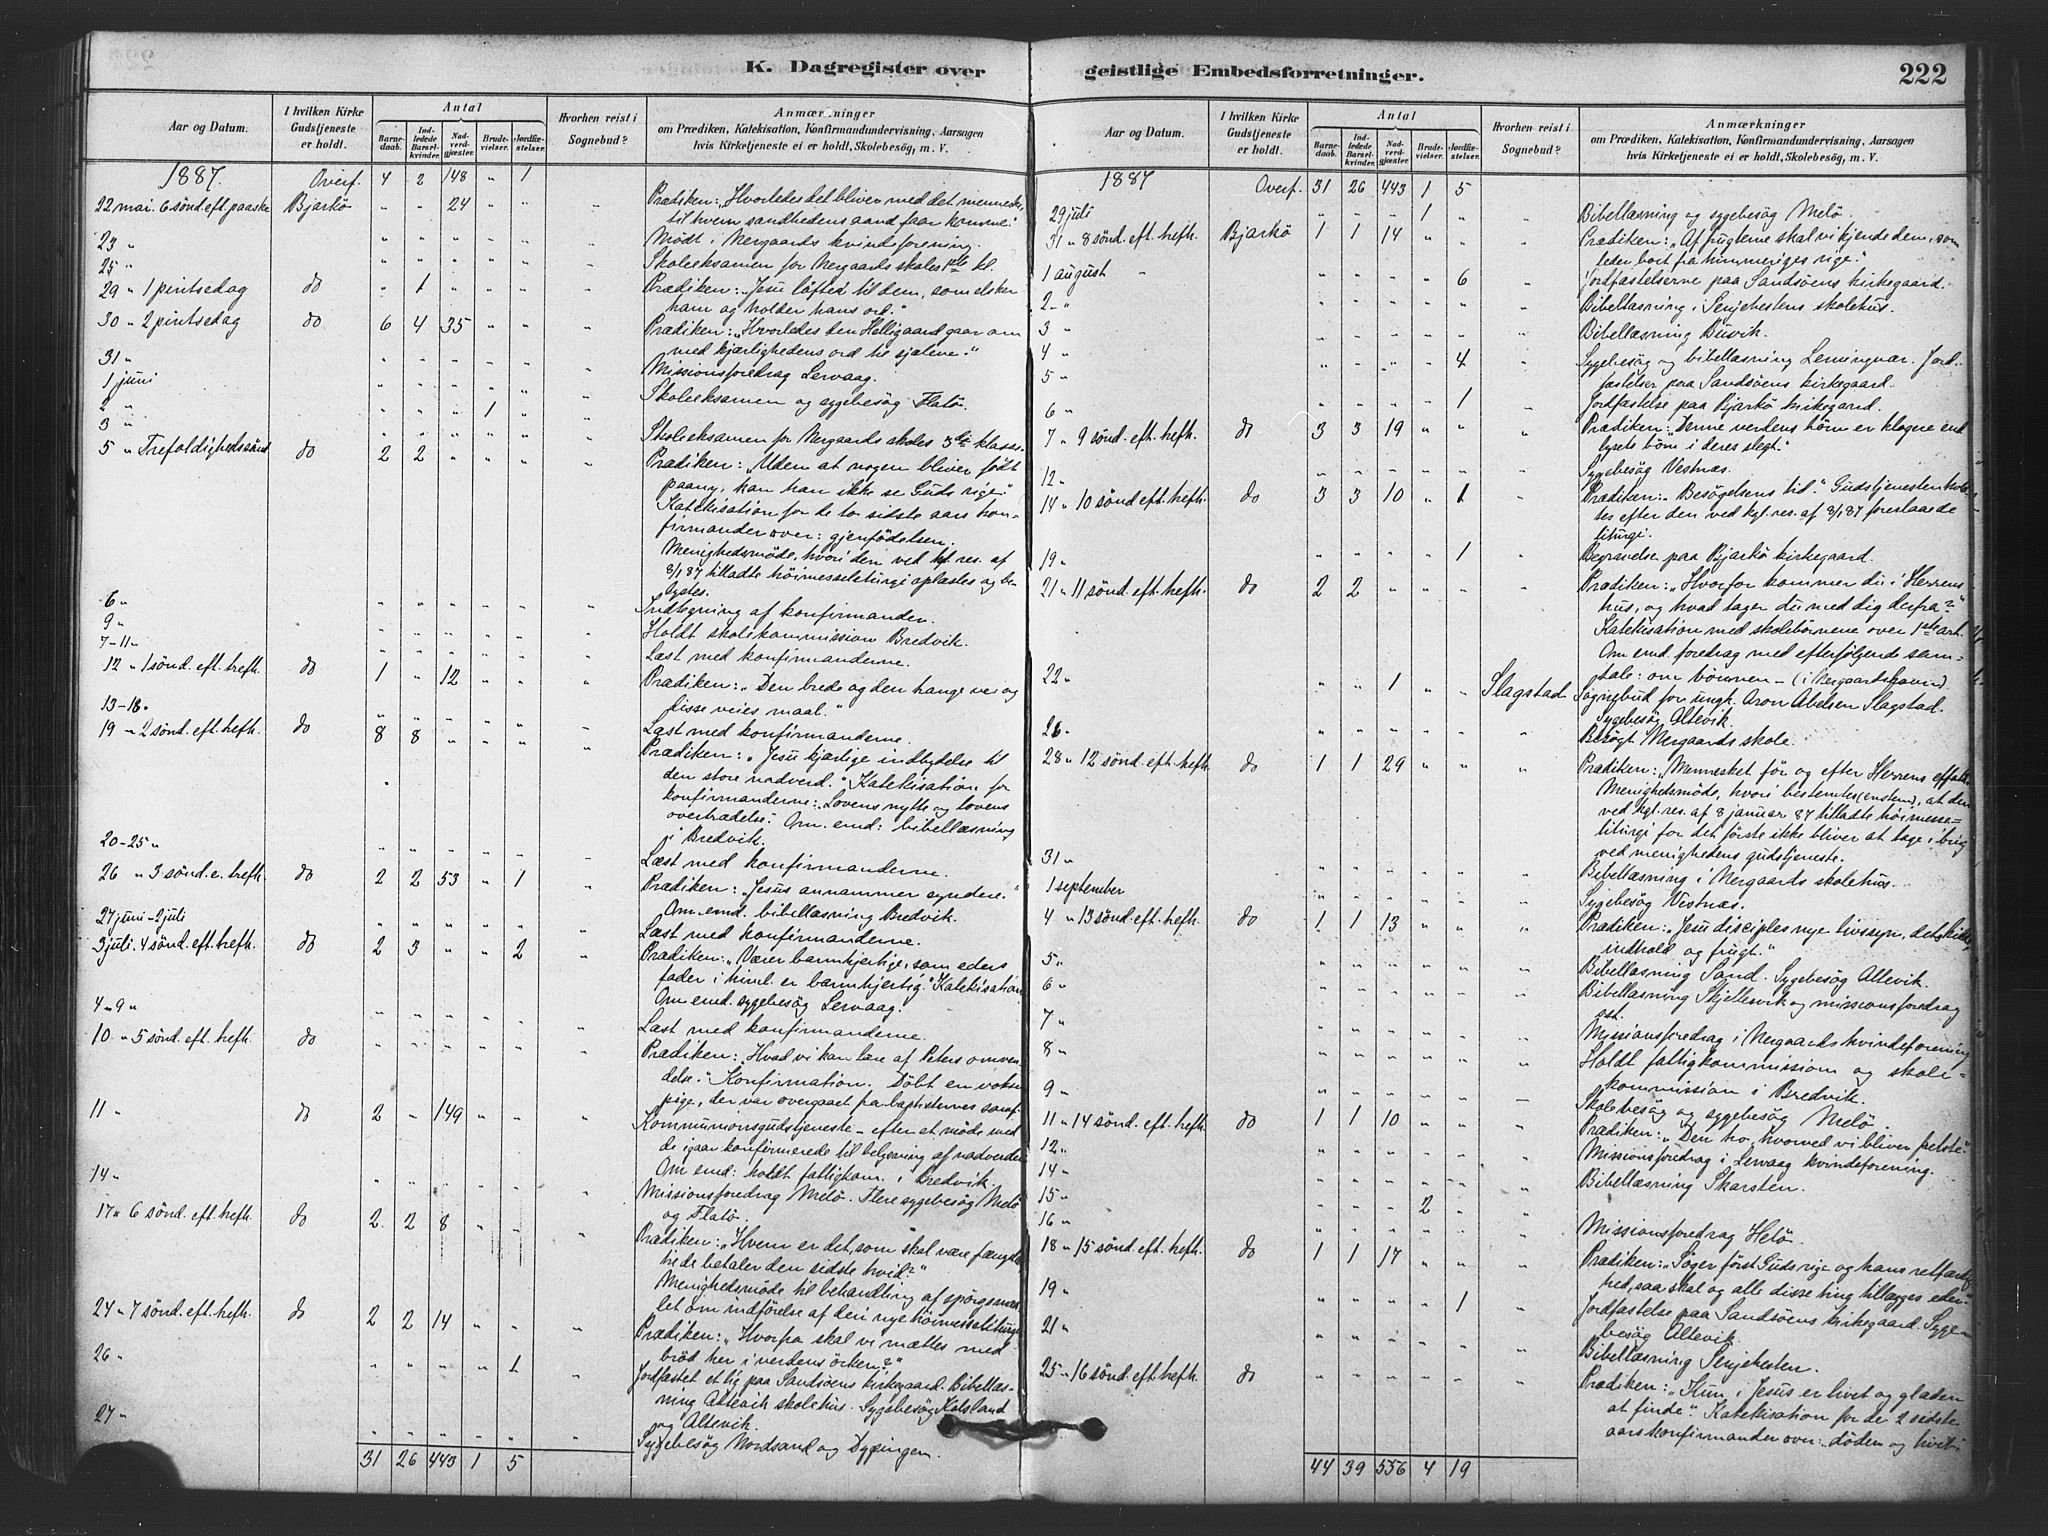 K. Dagregister over geistlige Embedsforretninger. 222
Aar og Datum. I hvilken Kirke Gudstjeneste er holdt. Antal Barnedaab. Indledede Barselkvinder. Nadverdgjæster. Brudevielser. Jordfæstelser. Hvorhen reist i Sognebud? Anmærkninger om Prædiken, Katekisation, Konfirmandundervisning, Aarsagen hvis Kirketjeneste ei er holdt, Skolebesøg, m. V.
1887. Overf. 4 2 148 " 1
22 mai. 6 sönd. eft. paaske Bjarkö " " 24 " " " Prædiken: "Hvorledes det bliver med det menneske,
til hvem sandhedens aand faar komme."
23 " " " " " " " Mödt i Nergaards kvindeforening.
25 " " " " " " " Skoleeksamen for Nergaards skoles 1ste kl.
29 " 1 pintsedag do " 1 " " " " Prædiken: "Jesu löfter til dem, som elsker
ham og holder hans ord."
30 " 2 pintsedag do 6 4 35 " " " Prædiken: "Hvorledes den Helligaand gaar om
med kjærlighedens ord til sjælene."
31 " " " " " " " Missionsforedrag Lervaag.
1 juni " " " " " " Skoleeksamen og sygebesög Flatö.
2 " " " " 1 " "
3 " " " " " " " Skoleeksamen for Nergaards skoles 3die klasse.
5 " Trefoldighedssönd. do 2 2 " " " " Prædiken: "Uden at nogen bliver födt
paany, kan han ikke se Guds rige."
Katekisation for de to sidste aars kon-
firmander over: gjenfödelsen.
Menighedsmöde, hvori den ved kgl. res. af
8/1 87 tilladte höimesseliturgi oplæstes og be-
lystes.
6 " " " " " " " Indtegning af konfirmander.
9 " " " " " " " Holdt skolekommission Bredvik.
7-11 " " " " " " " Læst med konfirmanderne.
12 " 1 sönd. eft. trefh. do 1 " 12 " " " Prædiken: "Den brede og den trange vei og
disse veies maal."
13-18 " " " " " " " Læst med konfirmanderne.
19 " 2 sönd. eft. trefh. do 8 8 " " " " Prædiken: "Jesu kjærlige indbydelse til
den store nadverd." Katekisation for
konfirmanderne: "Lovens nytte og lovens
overtrædelse." Om emd: bibellæsning
i Bredvik.
20-25 " " " " " " " Læst med konfirmanderne.
26 " 3 sönd. e. trefh. do 2 2 53 " 1 " Prædiken: "Jesus annammer syndere."
Om emd. bibellæsning Bredvik.
27 juni-2 juli " " " " " " Læst med konfirmanderne.
3 juli. 4 sönd. eft. trefh. do 2 3 " " 2 " Prædiken: "Værer barmhjertige, som eders
fader i himl. er barmhjertig." Katekisation
Om emd. sygebesög Lervaag.
4 " 9 " " " " " " " Læst med konfirmanderne.
10 " 5 sönd. eft. trefh. do " " " " " " Prædiken: "Hvad vi kan lære af Peters omven-
delse." Konfirmation. Döbt en voksen
pige, der var overgaaet fra baptisternes samf.
11 " do 2 " 149 " " " Kommunionsgudstjeneste - efter et möde med
de igaar konfirmerede til belysning af nadverden
Om emd: holdt fattigkom. i Bredvik.
14 " " " " " " " Missionsforedrag Melö. Flere sygebesög Melö
og Flatö.
17 " 6 sönd. eft. trefh. do 2 2 8 " " " Prædiken: "Hvem er det, som skal være fængslet
til de betaler den sidste hvid?"
Menighedsmöde til behandling af spörgsmaa-
let om indförelse af den nye höimesseliturgi
24 " 7 sönd. eft. trefh. do 2 2 14 " " " Prædiken: "Hvorfra skal vi mættes med
bröd her i verdens örken?"
26 " " " " " 1 " Jordfæstet et lig paa Sandsöens kirkegaard. Bibellæs-
ning Altevik skolehus. Sygebesög Kolsland
og Altevik.
27 " " " " " " " Sygebesög Nordsand og Dypingen.
31 26 443 1 5
Aar og Datum. I hvilken Kirke Gudstjeneste er holdt. Antal Barnedaab. Indledede Barselkvinder. Nadverdgjæster. Brudevielser. Jordfæstelser. Hvorhen reist i Sognebud? Anmærkninger om Prædiken, Katekisation, Konfirmandundervisning, Aarsagen hvis Kirketjeneste ei er holdt, Skolebesøg, m. V.
1887 Overf. 31 26 443 1 5
29 juli " " " 1 " " Bibellæsning og sygebesög Melö.
31 " 8 sönd. eft. trefh. Bjarkö 1 1 14 " " " Prædiken: "Af frugterne skal vi kjende dem, som
leder bort fra himmeriges rige."
1 august " " " " 6 " Jordfæstelserne paa Sandsöens kirkegaard.
2 " " " " " " " Bibellæsning i Senjehestens skolehus.
3 " " " " " " " Bibellæsning Buvik.
4 " " " " " 4 " Sygebesög og bibellæsning Lemingvær. Jord-
fæstelser paa Sandsöens kirkegaard.
5 "
6 " " " " " 1 " Jordfæstelse paa Bjarkö kirkegaard.
7 " 9 sönd. eft. trefh. do 3 3 19 " " " Prædiken: "Denne verdens börn er klogere end
lysets börn i deres slegt."
12 " " " " " " " Sygebesög Vestnæs.
14 " 10 sönd. eft. trefh. do 3 3 10 " 1 " Prædiken: "Besögelsens tid." Gudstjenesten hold-
tes efter den ved kgl. res. af 8/1 87 foreslaaede
liturgi.
19 " " " " " 1 " Begravelse paa Bjarkö kirkegaard.
21 " 11 sönd. eft. trefh. do 2 2 " " " " Prædiken: "Hvorfor kommer du i Herrens
hus, og hvad tager du med dig derfra?"
Katekisation med skolebörnene over 1ste art.
Om emd. foredrag med efterfölgende sam-
tale: om bönnen - (i Nergaardshavn).
22 " " " 1 " " Slagstad Sognebud for ungk. Aron Abelsen Slagstad.
Sygebesög Altevik.
26 " " " " " " " Besögt Nergaards skole.
28 " 12 sönd. eft. trefh. do 1 1 29 " " " Prædiken: "Mennesket för og efter Herrens effata."
Menighedsmöde, hvori bestemtes (enstem), at den
ved kgl. res. af 8 januar 87 tilladte höimesse-
liturgi for det förste ikke bliver at tage i brug
ved menighedens gudstjeneste.
31 " " " " " " " Bibellæsning i Nergaards skolehus.
1 september " " " " " " Sygebesög Vestnæs.
4 " 13 sönd. eft. trefh. do 1 1 13 " " " Prædiken: "Jesu disciples nye livssyn, dets kilde,
indhold og frugt."
5 " " " " " " " Bibellæsning Sand. Sygebesög Altevik.
6 " " " " " " " Bibellæsning Skjellesvik og missionsforedrag
sst.
7 " " " " " " " Missionsforedrag i Nergaards kvindeforening
8 " " " " " " " Holdt fattigkommission og skole-
kommission i Bredvik.
9 " " " " " " " Skolebesög og sygebesög Melö.
11 " 14 sönd. eft. trefh. do 1 1 10 " " " Prædiken: "Den tro, hvorved vi bliver frelste."
12 " " " " " " " Missionsforedrag i Lervaag kvindeforening.
14 " " " " " " " Bibellæsning Skarsten.
15 " " " " 2 " "
16 " " " " " " " Missionsforedrag Helö.
18 " 15 sönd. eft. trefh. do 1 1 17 " " " Prædiken: "Söger först Guds rige og hans retfærdig-
hed, saa skal og alle disse ting tillægges eder."
19 " " " " " 1 " Jordfæstelse paa Sandsöens kirkegaard. Syge-
besög Altevik.
21 " " " " " " " Bibellæsning Senjehesten.
25 " 16 sönd. eft. trefh. do " " " " " " Prædiken: "Kun i Jesus er livet og glæden
at finde". Katekisation for de 2 sidste
aars konfirmander over: "döden og livet."
44 39 556 4 19